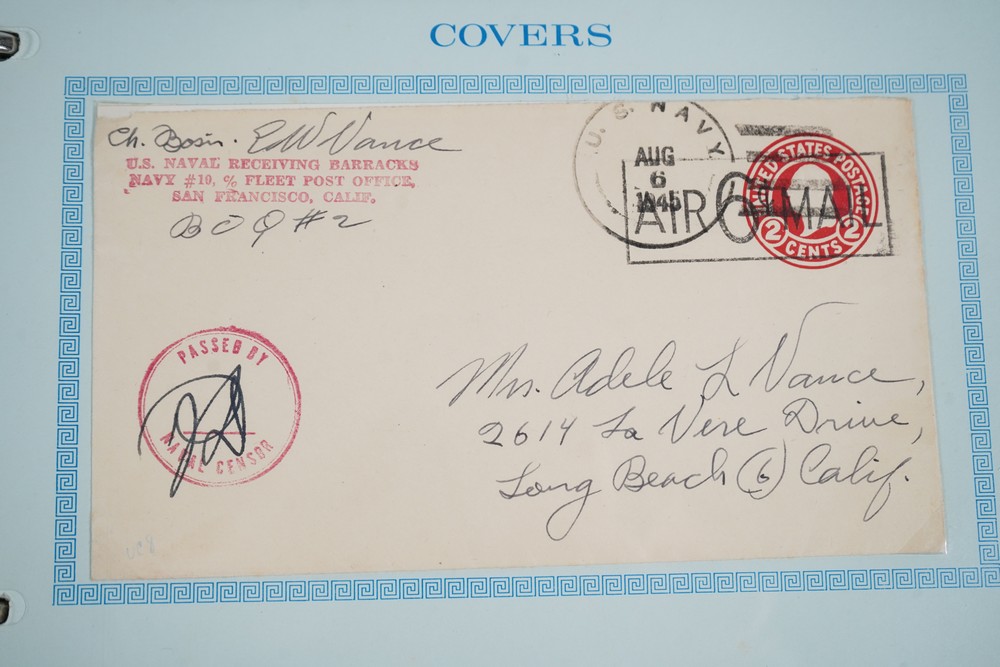 COVERS
Ch. Bosn. EW Vance
U.S. NAVAL RECEIVING BARRACKS
NAVY #10, % FLEET POST OFFICE,
SAN FRANCISCO, CALIF.
BOQ #2
U. S. NAVY
AUG
6
1945
AIR 6¢ MAIL
UNITED STATES POSTAGE
2 CENTS 2
PASSED BY
NAVAL CENSOR
Mrs. Adele L Vance,
2614 La Vere Drive,
Long Beach (6) Calif.